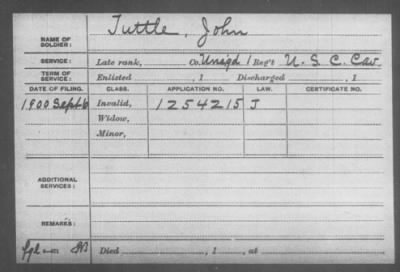 Tuttle, John
NAME OF
SOLDIER:
SERVICE: Late rank, Co. Unasgd 1 Reg't U. S. C. Cav.
TERM OF
SERVICE: Enlisted , 1 Discharged , 1
DATE OF FILING. CLASS. APPLICATION NO. LAW. CERTIFICATE NO.
1900 Sept 6 Invalid, 1254215 J
Widow,
Minor,
ADDITIONAL
SERVICES:
REMARKS:
Died , 1 , at